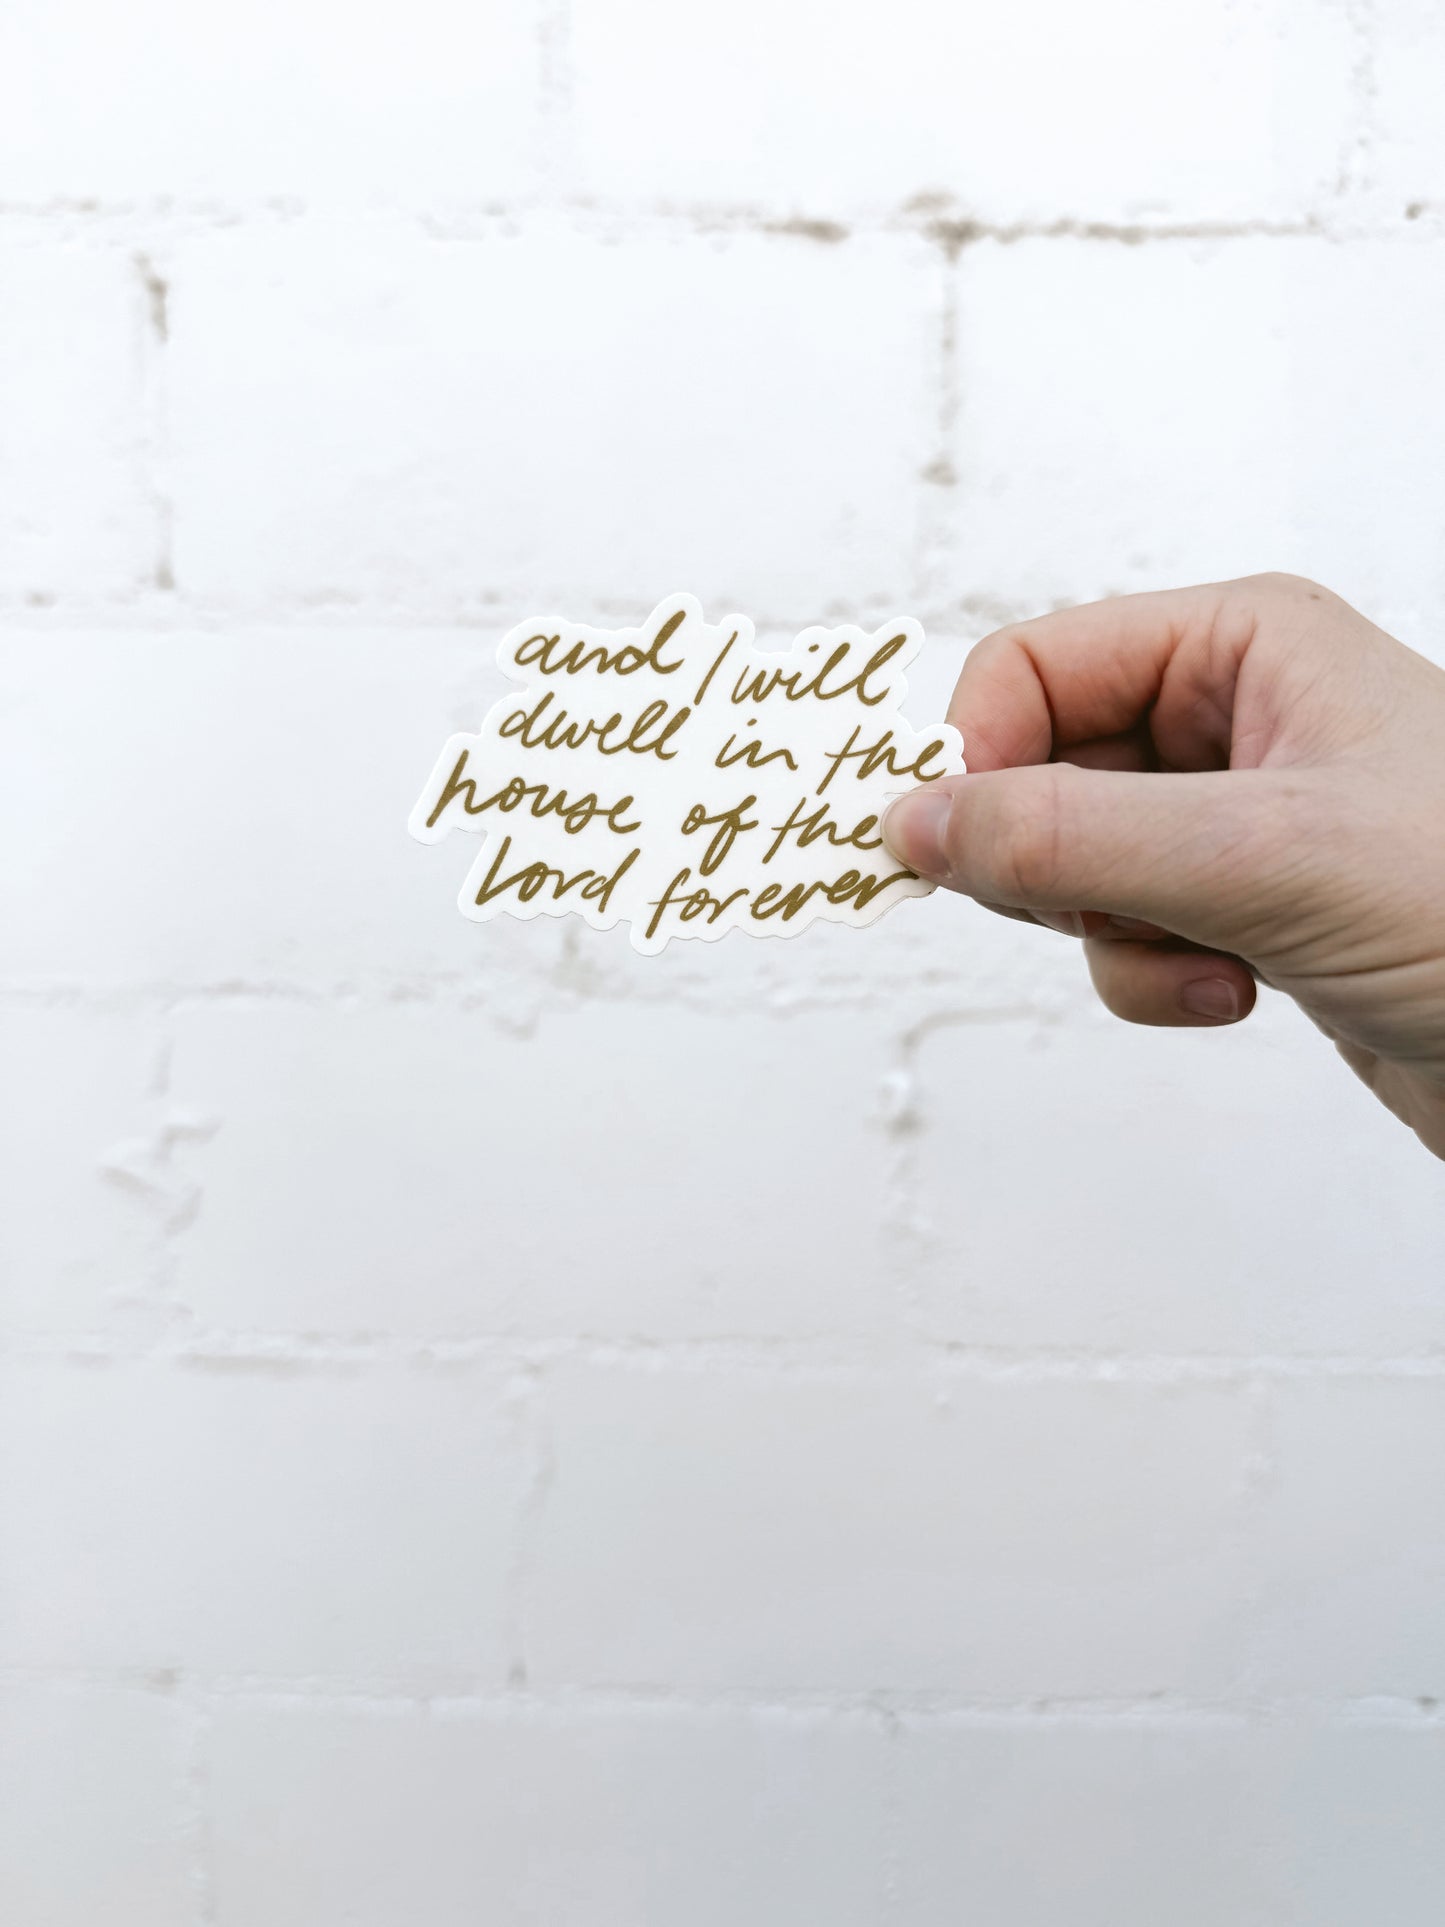 and I will
dwell in the
house of the
Lord forever